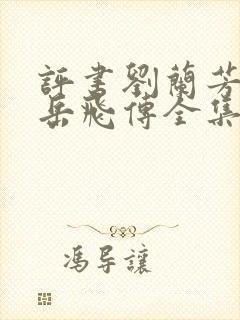 評書劉蘭芳
岳飛傳全集
馮导讓